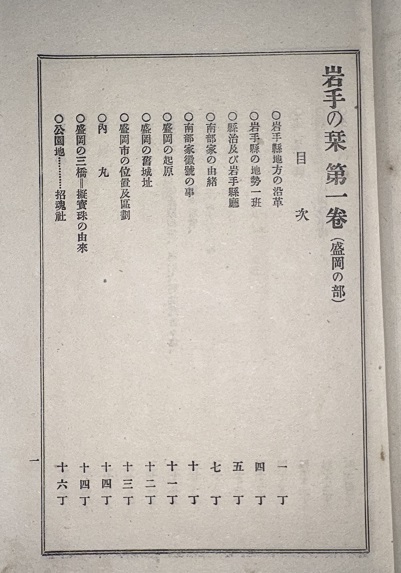 岩手の栞 第一卷（盛岡の部）
目次
〇岩手縣地方の沿革 一丁
〇岩手縣の地勢一班 四丁
〇縣治及び岩手縣廳 五丁
〇南部家の由緖 七丁
〇南部家徽號の事 十丁
〇盛岡の起原 十一丁
〇盛岡の舊城址 十二丁
〇盛岡市の位置及區劃 十三丁
〇內丸 十四丁
〇盛岡の三橋＝擬寶珠の由来 十四丁
〇公園地…………招魂社 十六丁
一